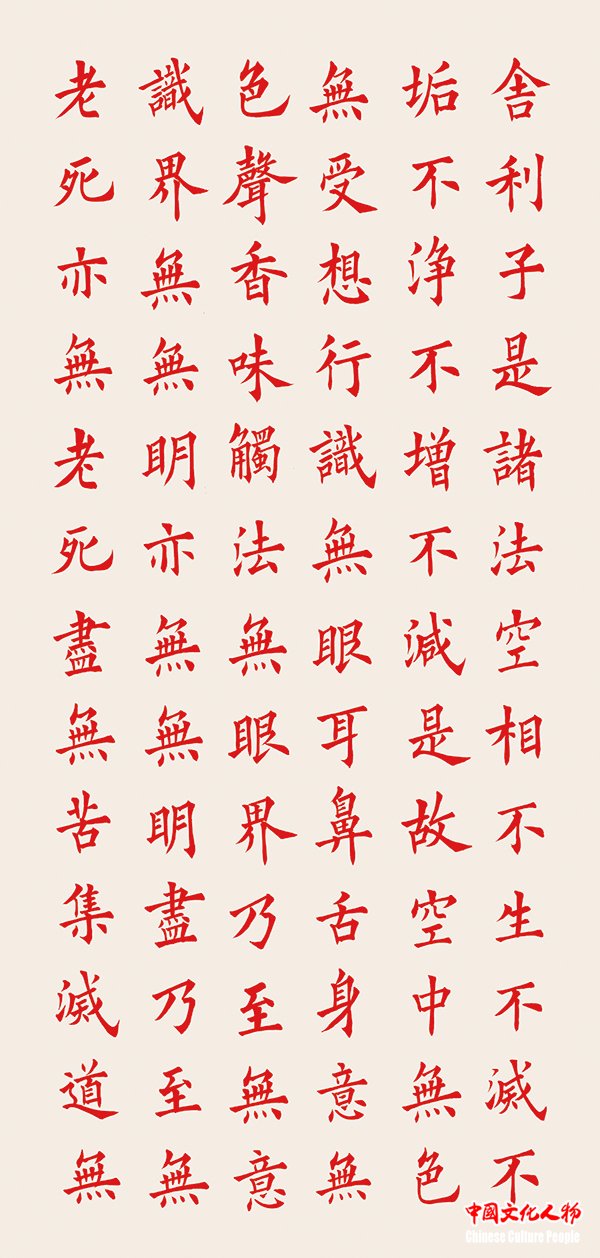 舍利子是諸法空相不生不滅不
垢不淨不增不減是故空中無色
無受想行識無眼耳鼻舌身意無
色聲香味觸法無眼界乃至無意
識界無無明亦無無明盡乃至無
老死亦無老死盡無苦集滅道無
中國文化人物
Chinese Culture People